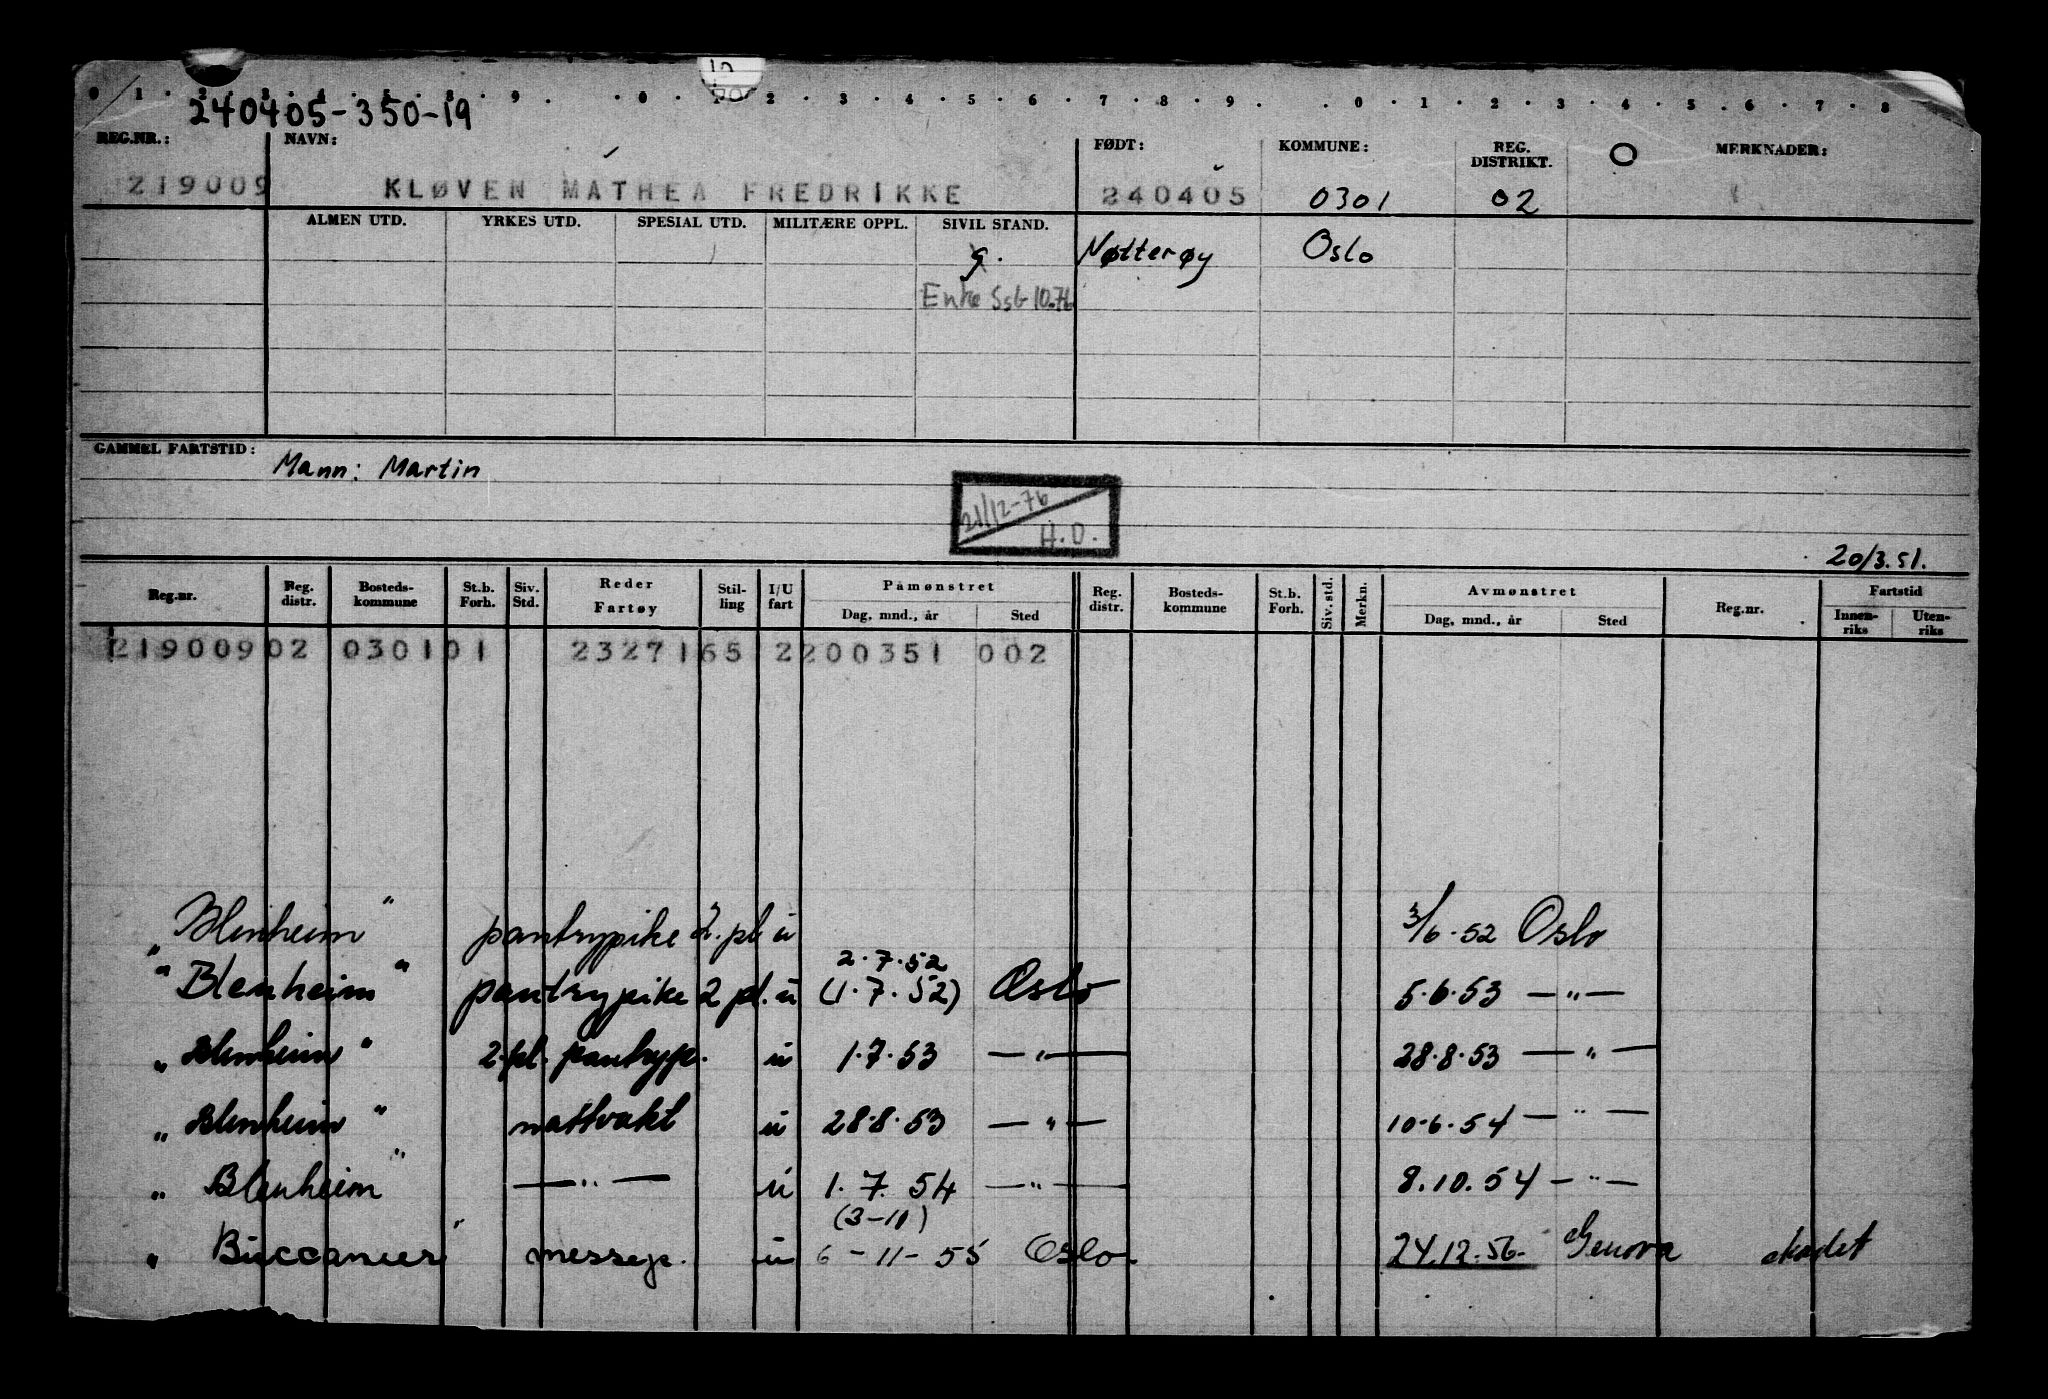 0 1 . 2 . 3 . 4 . 5 . 8 . 9 . . 0 . 1 . 2 . 3 . 4 . 5 . 6 . 7 . 8 . 9 . . 0 . 1 . 2 . 3 . 4 . 5 . 6 . 7 . 8
240405-350-19
REG.NR.: NAVN: FØDT: KOMMUNE: REG. DISTRIKT. O MERKNADER:
219009 KLØVEN MATHEA FREDRIKKE 240405 0301 02
ALMEN UTD. YRKES UTD. SPESIAL UTD. MILITÆRE OPPL. SIVIL STAND.
g. Nøtterøy Oslo
Enke Ssb 10.76
GAMMEL FARTSTID: Mann: Martin
21/12-76
H.O.
20/3.51.
Reg.nr. Reg. distr. Bosteds-kommune St.b. Forh. Siv. Std. Reder Fartøy Stil-ling I/U fart Påmønstret Reg. distr. Bosteds-kommune St.b. Forh. Siv. std. Merkn. Avmønstret Reg.nr. Fartstid
Dag, mnd., år Sted Dag, mnd., år Sted Innen-riks Uten-riks
219009 02 0301 01 23271 65 2 200351 002
„ Blenheim " pantrypike 2. pl u 3/6.52 Oslo
2.7.52
" Blenheim " pantrypike 2 pl. u (1.7.52) Oslo 5.6.53 — " —
„ Blenheim " 2.pl. pantryp. u 1.7.53 — " — 28.8.53 — " —
„ Blenheim " nattvakt u 28.8.53 — " — 10.6.54 — " —
„ Blenheim " — " — u 1.7.54 — " — 8.10.54 — " —
(3-11)
„ Buccaneer " messep. u 6-11-55 Oslo. 24.12.56. Genova skadet